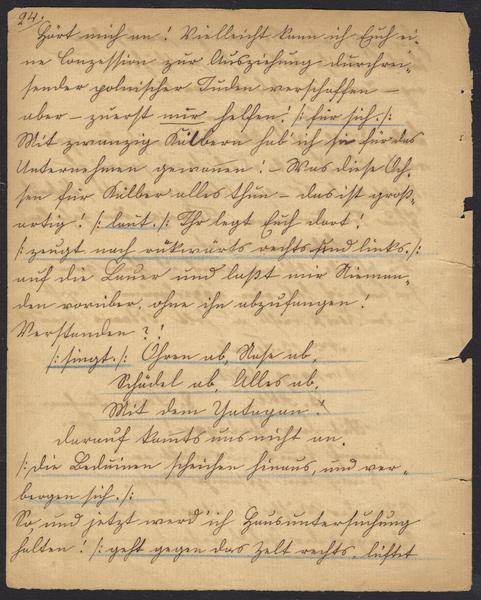 24.
Hört mich an! Vielleicht kann ich Euch ei-
ne Conzession zur Ausziehung durchrei-
sender polnischer Juden verschaffen —
aber — zuerst nur helfen! /: für sich. :/
Mit zwanzig Kälbern hab' ich sie für das
Unternehmen gewonnen! — Was diese Och-
sen für Kälber alles thun — das ist groß-
artig! /: laut. :/ Ihr legt Euch dort!
/: zeugt nach rükwärts rechts und links. :/
auf die Lauer und laßt mir Nieman-
den vorüber, ohne ihn abzufangen!
Verstanden?!
/: singt. :/ Ohren ab, Nase ab,
Schädel ab, Alles ab,
Mit dem Yatagan!
darauf komts uns nicht an.
/: die Beduinen schleichen hinaus, und ver-
bergen sich. :/
So, und jetzt werd' ich Hausuntersuchung
halten! /: geht gegen das Zelt rechts, lüftet